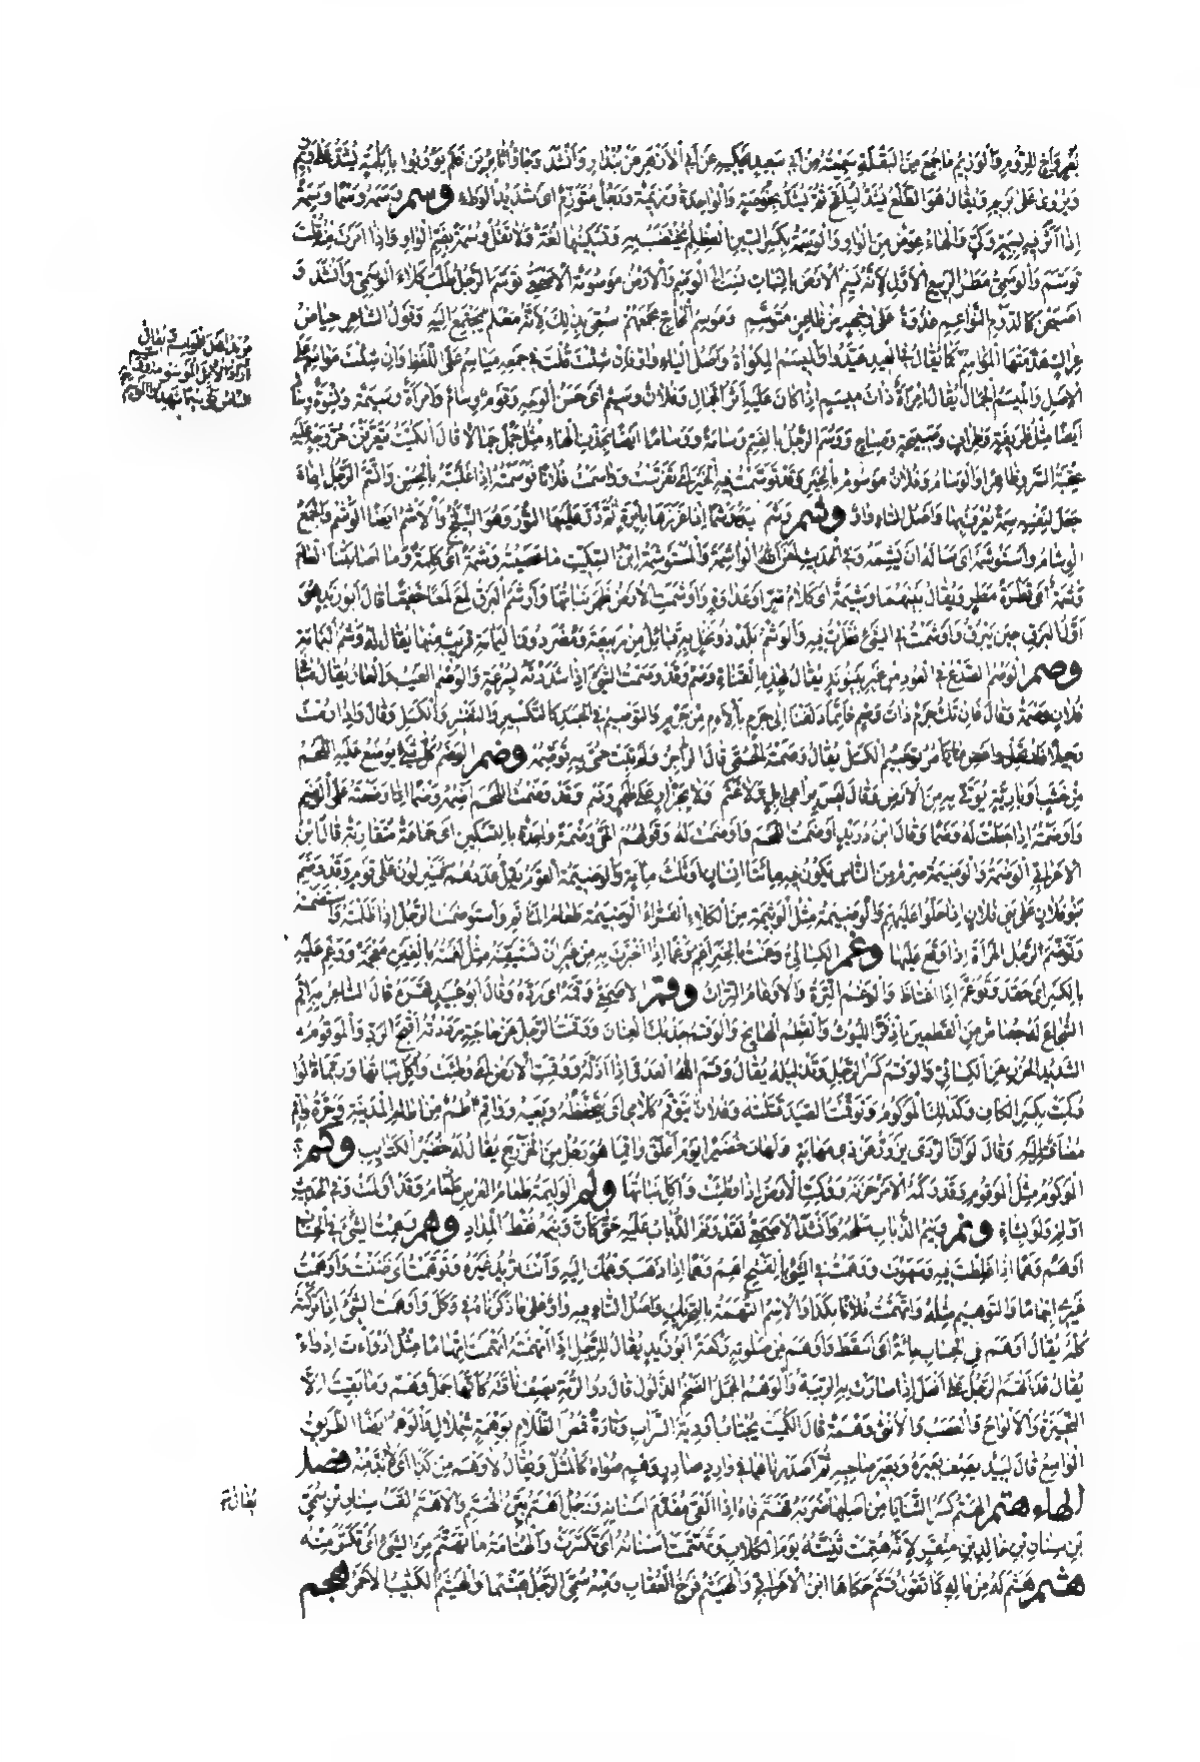 ويروى على برجه ويقال هو الطلع يشق ليلقح ثم يشد بخوصة والواحدة وزيمة ورجل متوزم اى شديد الوطء وسم وسمه وسما وسمة
اذا اثر فيه بسمة وكى والهاء عوض من الواو والوسمة بكسر السين العظلم يختضب به وتسكينها لغة ولا تقل وسمة بضم الواو واذا امرت منه قلت
توسم والوسمى مطر الربيع الاول لانه يسم الارض بالنبات نسب الى الوسم والارض موسومة الاصمعى توسم الرجل طلب كلاء الوسمى وانشد و
اصبحن كالدوم النواعم غدوة على وجهة من ظاعن متوسم وموسم الحاج مجمعهم سمى بذلك لانه معلم يجتمع اليه وقول الشاعر حياض
عراك هدمتها المواسم كما يقال فى العيد عيدوا والميسم المكواة واصل الياء واو فان شئت قلت فى جمعه مياسم على اللفظ وان شئت مواسم على
الاصل والميسم الجمال يقال امرأة ذات ميسم اذا كان عليها اثر الجمال وفلان وسيم اى حسن الوجه وقوم وسام وامرأة وسيمة ونسوة وسام
ايضا مثل ظريفة وظراف وصبيحة وصباح ووسم الرجل بالضم وسامة ووساما ايضا بحذف الهاء مثل جمل جمالا قال الكميت يتعرفن حر وجه عليه
عقبة السرو ظاهرا والوسام وفلان موسوم بالخير وقد توسمت فيه الخير اى تفرست وواسمت فلانا فوسمته اذا غلبته بالحسن واتسم الرجل اذا
جعل لنفسه سمة يعرف بها واصل التاء واو وشم وشم يده وشما اذا غرزها بابرة ثم ذر عليها النؤور وهو النيلج والاسم ايضا الوشم والجمع
الوشام واستوشمه اى سأله ان يشمه وفى الحديث لعن الله الواشمة والمستوشمة ابن السكيت ما عصيته وشمة اى كلمة وما اصابتنا العام
وشمة اى قطرة مطر ويقال بينهما وشيمة اى كلام شر او عداوة واوشمت الارض ظهر نباتها واوشم البرق لمع لمعا خفيفا قال ابو زيد هو
اول البرق حين يبرق واوشمت فى الشىء نظرت فيه والوشم بلد ذو نخل به قبائل من ربيعة ومضر دون اليمامة قريب منها يقال له وشم اليمامة
وصم الوصم الصدع فى العود من غير بينونة يقال بهذه القناة وصم وقد وصمت الشىء اذا شددته بسرعة والوصم العيب والعار يقال ما فى
فلان وصمة وقال فان تك جرم ذات وصم فانما دلفنا الى جرم بألأم من جرم والتوصيم فى الجسد كالتكسير والفترة والكسل وقال واذا رمت
رحيلا فارتحل واعص ما يأمر توصيم الكسل يقال وصمته الحمى قال الراجز ولم تبت حمى به توصمه وضم الوضم كل شىء يوضع عليه اللحم
من خشب او بارية يوقى به من الارض وقال ليس براعى ابل ولا غنم ولا بجزار على ظهر وضم وقد وضمت اللحم اضمه وضما اذا وضعته على الوضم
واوضمته اذا جعلت له وضما وقال ابن دريد اوضمت اللحم واوضمت له وقولهم الحى وضمة واحدة بالتسكين اى جماعة متقاربة قال ابن
الاعرابى الوضمة والوضيمة صرم من الناس يكون فيه مائتا انسان او ثلث مائة والوضيمة القوم يقل عددهم فينزلون على قوم وقد وضم
بنو فلان على بنى فلان اذا حلوا عليهم والوضيمة مثل الوثيمة من الكلاء الفراء الوضيمة طعام المأتم واستوضمت الرجل اذا ظلمته واستضمته
وتوضم الرجل المرأة اذا وقع عليها وغم الكسائى وغمت بالخبر اغم وغما اذا اخبرت به من غير ان تستيقنه مثل لغمت بالغين معجمة ووغم عليه
بالكسر اى حقد وتوغم اذا اغتاظ والوغم الترة والاوغام الترات وقم الاصمعى وقمه اى رده وقال ابو عبيد قهره قال الشاعر به اقم
الشجاع له حصاص من القطمين اذ فر الليوث والقطم الهايج والوقم جذبك العنان ووقمت الرجل عن حاجته رددته اقبح الرد والموقوم
الشديد الحزن عن الكسائى والوقم كسر الرجل وتذليله يقال وقم الله العدو اذا اذله ووقمت الارض اى وطئت واكل نباتها وربما قالوا
وكمت بكسر الكاف وكذلك الموكوم وتوقمت الصيد قتلته وفلان يتوقم كلامى اى يتحفظه ويعيه وواقم اطم من آطام المدينة وحرة واقم
مضاف اليه وقال لو ان الردى يزور عن ذى مهابة لهاب حضيرا يوم اغلق واقما هو رجل من الخزرج يقال له حضير الكتائب وكم
الموكوم مثل الموقوم وقد وكمه الامر حزنه ووكمت الارض اذا وطئت واكل نباتها ولم الوليمة طعام العرس وقد اولمت وفى الحديث
اولم ولو بشاة ونم ونيم الذباب سلحه وانشد الاصمعى لقد ونم الذباب عليه حتى كأن ونيمه نقط المداد وهم وهمت الشىء فى الحساب
اوهم وهما اذا غلطت فيه وسهوت ووهمت فى الشىء بالفتح اهم وهما اذا ذهب وهمك اليه وانت تريد غيره وتوهمت اى ظننت واوهمت
غيرى ايهاما والتوهيم مثله واتهمت فلانا بكذا والاسم التهمة بالتحريك واصل التاء فيه واو على ما ذكرناه فى وكل واوهمت الشىء اذا تركته
كله يقال اوهم فى الحساب مائة اى اسقط واوهم من صلوته ركعة ابو زيد يقال للرجل اذا اتهمته اتهمت اتهاما مثل ادوأت ادواء
يقال قد اتهم الرجل على افعل اذا صارت به الريبة والوهم الجمل الضخم الذلول قال ذو الرمة يصف ناقته كأنها جمل وهم وما بقيت الا
النحيزة والالواح والعصب والانثى وهمة قال الكميت يجتاب اردية السراب وتارة قمص الظلام بوهمة شملال والوهم ايضا الطريق
الواسع قال لبيد يصف بعيره وبعير صاحبه ثم اصدرناهما فى وارد صادر وهم صواه كالمثل ويقال لا وهم من كذا اى لا بد منه فصل
الهاء هتم الهتم كسر الثنايا من اصلها ضربه فهتم فاه اذا القى مقدم اسنانه ورجل اهتم بين الهتم والاهتم لقب سنان بن سمى
بن سنان بن خالد بن منقر لانه هتمت ثنيته يوم الكلاب وتهتمت اسنانه اى تكسرت والهتامة ما تهتم من الشىء اى تكسر منه
هثم هثم له من ماله كما تقول قثم حكاها ابن الاعرابى والهيثم فرخ العقاب ومنه سمى الرجل هيثما والهيثم الكثيب الاحمر هجم